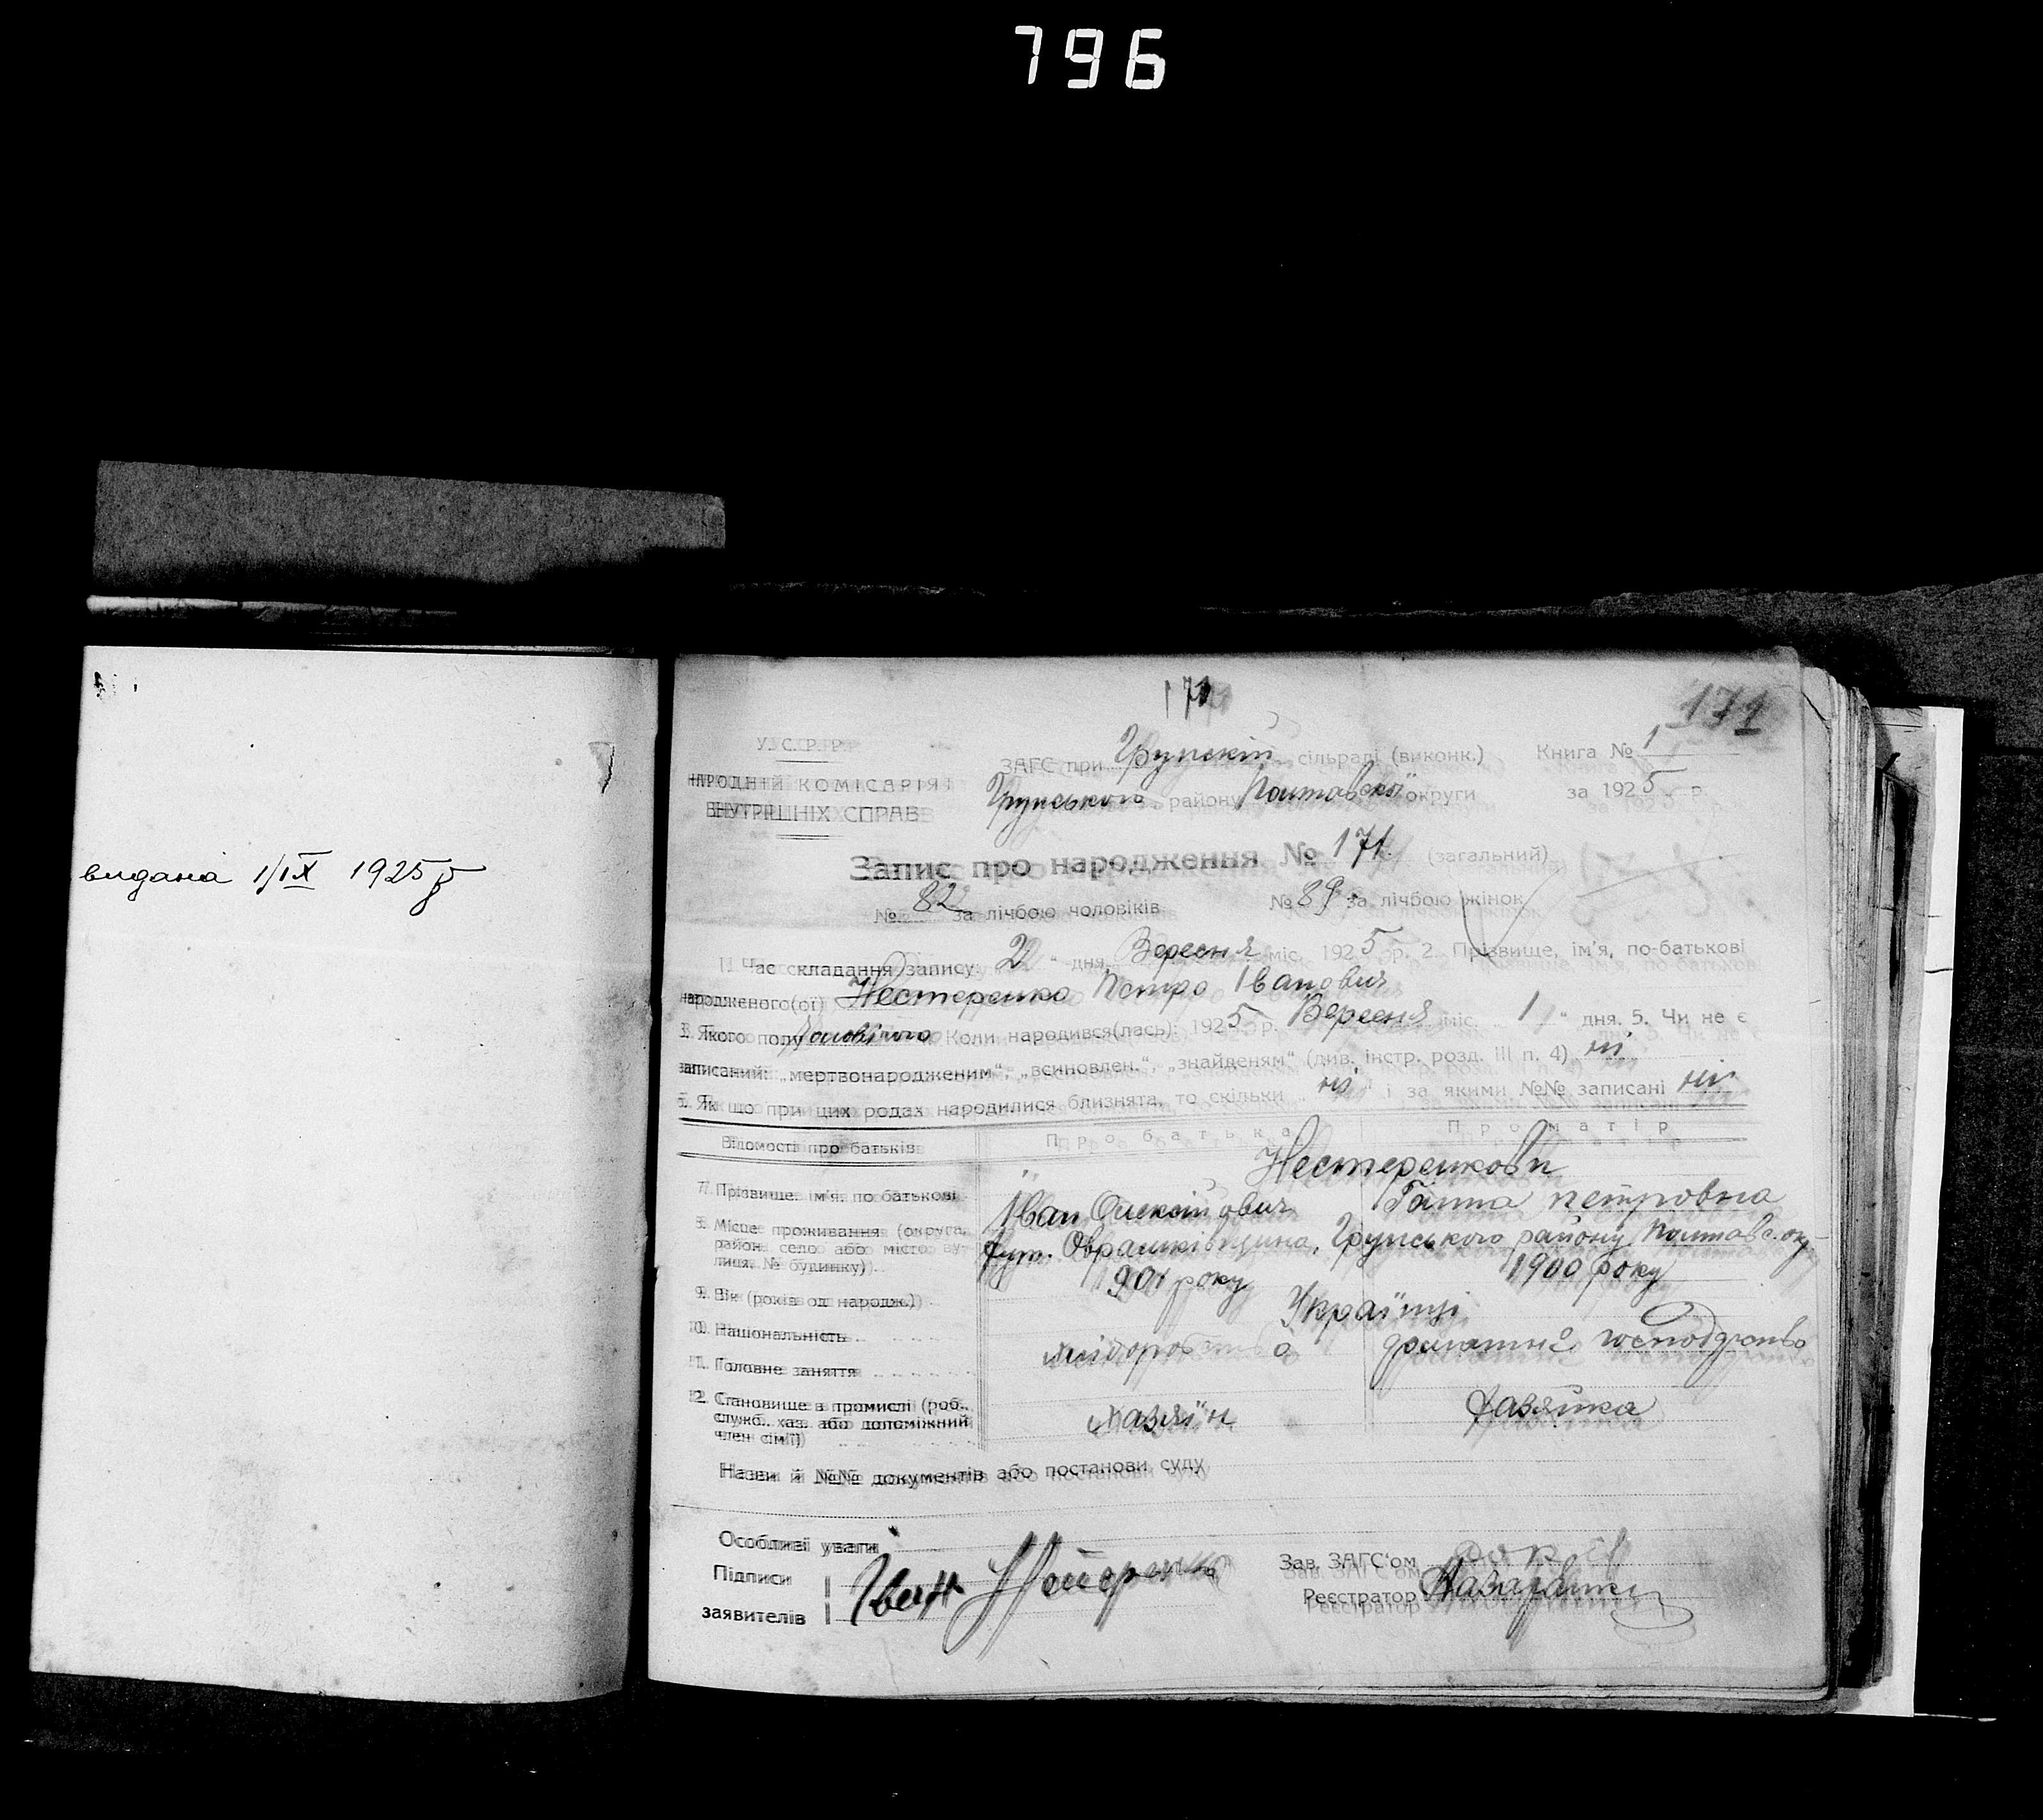 796
видана 1/IX 1925 р
171
171
У. С. Р. Р.
НАРОДНІЙ КОМІСАРІЯТ
ВНУТРІШНІХ СПРАВ
ЗАГС при Грунській сільраді (виконк.)
Грунського району Полтавської округи
Книга № 1
за 1925 р.
Запис про народження № 171 (загальний)
№ 82 за лічбою чоловіків № 89 за лічбою жінок
1. Час складання запису: 2 " дня Вересня міс. 1925 р. 2. Прізвище, ім'я, по-батькові
народженого(ої) Нестеренко Петро Іванович
3. Якого полу Коли народився(лась): 1925 р. Вересня міс. 1 " дня. 5. Чи не є
записаний: „мертвонародженим", „всиновлен.", „знайденям" (див. інстр. розд. III п. 4) ні
6. Як що при цих родах народилися близнята, то скільки ні і за якими №№ записані ні
Відомості про батьків Про батька Про матір
Нестеренкови
7. Прізвище, ім'я, по батькові Іван Олексійович Ганна Петровна
8. Місце проживання (округа, район, село або місто ву- лиця, № будинку) хут. Грунського району Полтавс. ок
9. Вік (років од народж.) 1901 року 1900 року
10. Національність Українці
11. Головне заняття хліборобство домашнє господрство
12. Становище в промислі (роб., служб., хаз. або допоміжний член сім'ї) хазяїн хазяйка
Назви й №№ документів або постанови суду
Особливі уваги
Підписи
заявителів Іван
Зав. ЗАГС'ом
Реєстратор